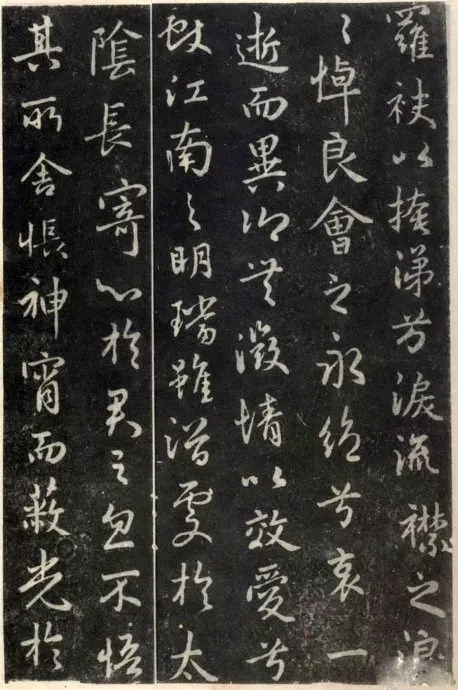 羅袂以掩涕兮淚流襟之浪
〻悼良會之永絕兮哀一
逝而異鄉無微情以效愛兮
獻江南之明璫雖潛處於太
陰長寄心於君王忽不悟
其所舍悵神宵而蔽光於